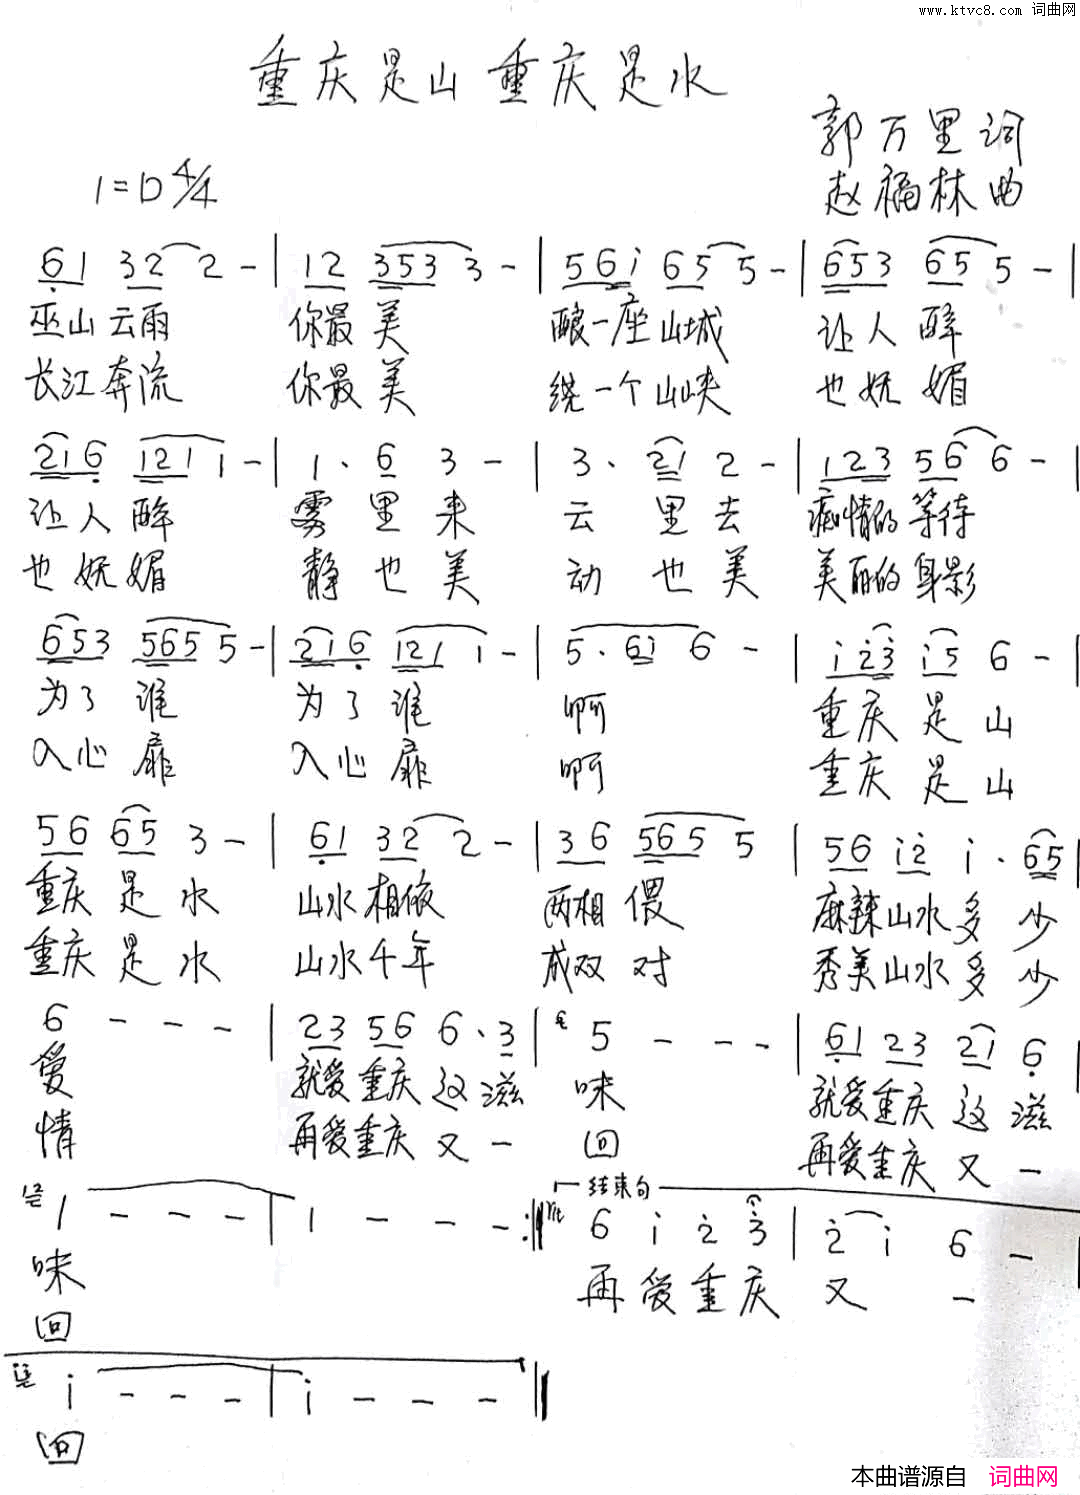 www.ktvc8.com 词曲网
重庆是山 重庆是水
郭万里词
1=D 4/4
赵福林曲
6 1 3 2 2 - | 1 2 3 5 3 3 - | 5 6 i 6 5 5 - | 6 5 3 6 5 5 - |
巫山云雨 你最美 酿一座山城 让人醉
长江奔流 你最美 绕一个山峡 也妩媚
2 1 6 1 2 1 1 - | 1 · 6 3 - | 3 · 2 1 2 - | 1 2 3 5 6 6 - |
让人醉 雾里来 云里去 痴情的等待
也妩媚 静也美 动也美 美丽的身影
6 5 3 5 6 5 5 - | 2 1 6 1 2 1 1 - | 5 · 6 i 6 - | i 2 3 i 5 6 - |
为了谁 为了谁 啊 重庆是山
入心扉 入心扉 啊 重庆是山
5 6 6 5 3 - | 6 1 3 2 2 - | 3 6 5 6 5 5 | 5 6 i 2 i · 6 5
重庆是水 山水相依 两相偎 麻辣山水多少
重庆是水 山水千年 成双对 秀美山水多少
6 - - - | 2 3 5 6 6 · 3 | 5 - - - | 6 1 2 3 2 1 6 |
爱 就爱重庆这滋 味 就爱重庆这滋
情 再爱重庆又一 回 再爱重庆又一
结束句
1 - - - | 1 - - - :‖ rit 6 i 2 3 | 2 i 6 - |
味 再爱重庆 又一
回
i - - - | i - - - ‖
回
本曲谱源自 词曲网